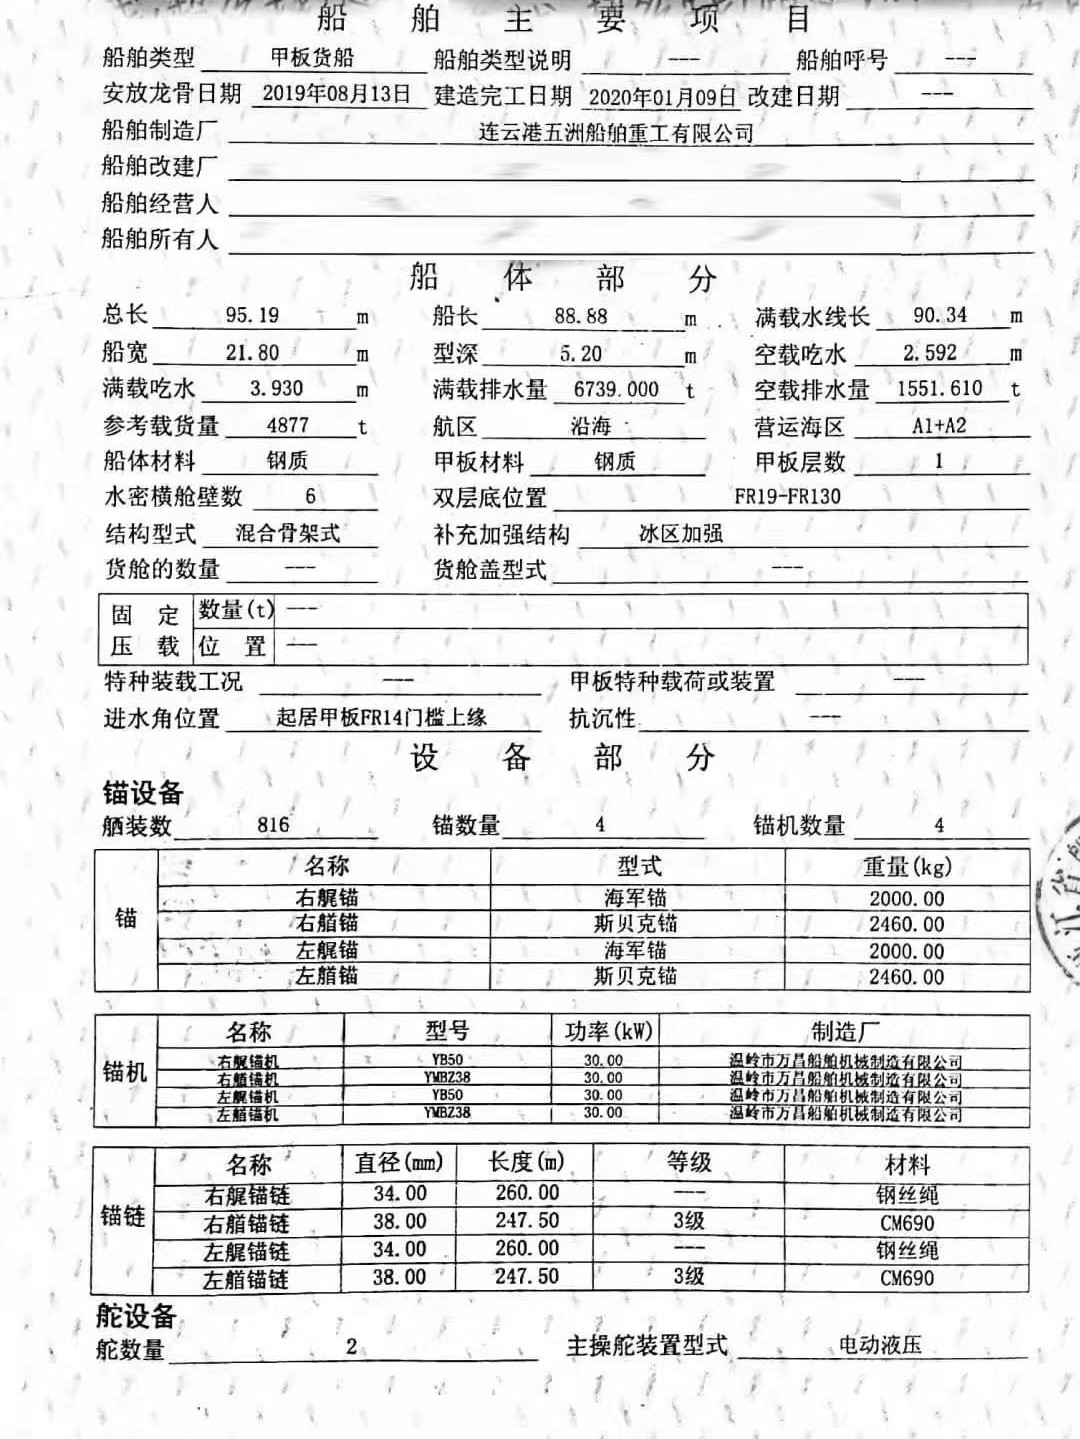 船舶主要项目
船舶类型 甲板货船 船舶类型说明 --- 船舶呼号 ---
安放龙骨日期 2019年08月13日 建造完工日期 2020年01月09日 改建日期 ---
船舶制造厂 连云港五洲船舶重工有限公司
船舶改建厂
船舶经营人
船舶所有人
船体部分
总长 95.19 m 船长 88.88 m 满载水线长 90.34 m
船宽 21.80 m 型深 5.20 m 空载吃水 2.592 m
满载吃水 3.930 m 满载排水量 6739.000 t 空载排水量 1551.610 t
参考载货量 4877 t 航区 沿海 营运海区 A1+A2
船体材料 钢质 甲板材料 钢质 甲板层数 1
水密横舱壁数 6 双层底位置 FR19-FR130
结构型式 混合骨架式 补充加强结构 冰区加强
货舱的数量 --- 货舱盖型式 ---
固定 数量(t) ---
压载 位置 ---
特种装载工况 --- 甲板特种载荷或装置 ---
进水角位置 起居甲板FR14门槛上缘 抗沉性 ---
设备部分
锚设备
舾装数 816 锚数量 4 锚机数量 4
名称 型式 重量(kg)
锚
右艉锚 海军锚 2000.00
右艏锚 斯贝克锚 2460.00
左艉锚 海军锚 2000.00
左艏锚 斯贝克锚 2460.00
名称 型号 功率(kW) 制造厂
锚机
右艉锚机 YB50 30.00 温岭市万昌船舶机械制造有限公司
右艏锚机 YMBZ38 30.00 温岭市万昌船舶机械制造有限公司
左艉锚机 YB50 30.00 温岭市万昌船舶机械制造有限公司
左艏锚机 YMBZ38 30.00 温岭市万昌船舶机械制造有限公司
名称 直径(mm) 长度(m) 等级 材料
锚链
右艉锚链 34.00 260.00 --- 钢丝绳
右艏锚链 38.00 247.50 3级 CM690
左艉锚链 34.00 260.00 --- 钢丝绳
左艏锚链 38.00 247.50 3级 CM690
舵设备
舵数量 2 主操舵装置型式 电动液压